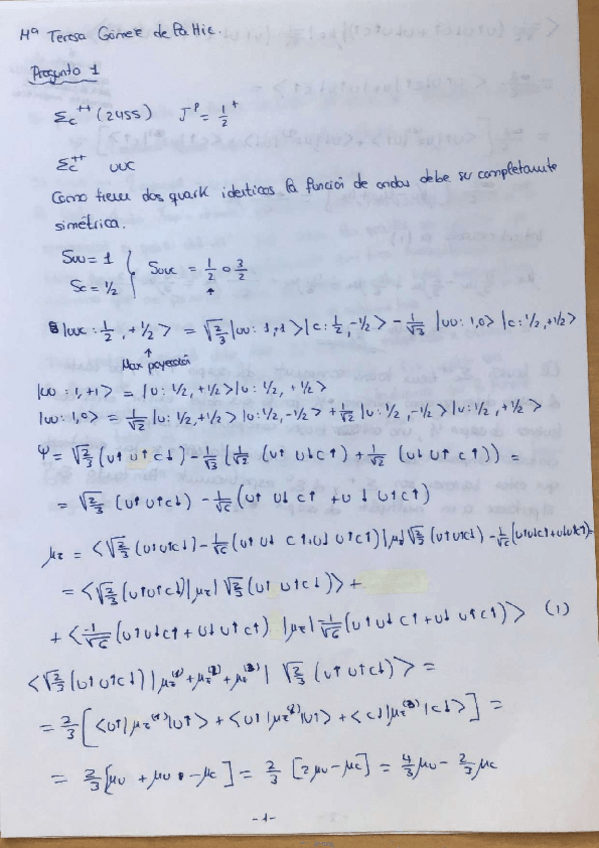 Mª Teresa Gómez de
Pregunta 1
Σc⁺⁺ (2455) Jᴾ = 1/2⁺
Σc⁺⁺ uuc
Como tienen dos quark identicos la función de ondas debe ser completamente
simétrica.
Suu = 1
Sc = 1/2
Suuc = 1/2 o 3/2
|uuc : 1/2, +1/2> = √(2/3) |uu : 1,1>|c : 1/2, -1/2> - 1/√3 |uu : 1,0>|c : 1/2, +1/2>
Max proyección
|uu : 1, +1> = |u : 1/2, +1/2>|u : 1/2, +1/2>
|uu : 1,0> = 1/√2 |u : 1/2, +1/2>|u : 1/2, -1/2> + 1/√2 |u : 1/2, -1/2>|u : 1/2, +1/2>
Ψ = √(2/3) (u↑ u↑ c↓) - 1/√3 (1/√2 (u↑ u↓ c↑) + 1/√2 (u↓ u↑ c↑)) =
= √(2/3) (u↑ u↑ c↓) - 1/√6 (u↑ u↓ c↑ + u↓ u↑ c↑)
μz = <√(2/3) (u↑u↑c↓) - 1/√6 (u↑u↓c↑ + u↓u↑c↑)|μz|√(2/3) (u↑u↑c↓) - 1/√6 (u↑u↓c↑ + u↓u↑c↑)> =
= <√(2/3) (u↑u↑c↓)|μz|√(2/3) (u↑u↑c↓)> +
+ <-1/√6 (u↑u↓c↑ + u↓u↑c↑)|μz|-1/√6 (u↑u↓c↑ + u↓u↑c↑)> (1)
<√(2/3) (u↑u↑c↓)|μz⁽¹⁾ + μz⁽²⁾ + μz⁽³⁾|√(2/3) (u↑u↑c↓)> =
= 2/3 [<u↑|μz⁽¹⁾|u↑> + <u↑|μz⁽²⁾|u↑> + <c↓|μz⁽³⁾|c↓>] =
= 2/3 [μu + μu - μc] = 2/3 [2μu - μc] = 4/3 μu - 2/3 μc
-1-